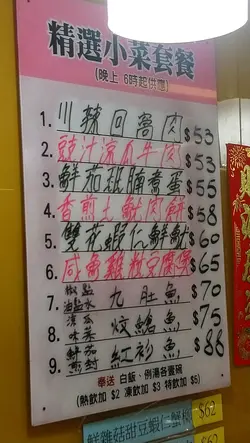 精選小菜套餐
(晚上 6時起供應)
1. 川辣回窩肉 $53
2. 豉汁涼瓜牛肉 $53
3. 鮮茄班腩煮蛋 $55
4. 香煎土魷肉餅 $58
5. 雙花蝦仁鮮魷 $60
6. 咸魚雞粒豆腐煲 $65
7. 椒鹽 九肚魚 $70
8. 涼瓜 炆鎗魚 $75
9. 鮮茄 紅衫魚 $88
奉送 白飯、例湯各壹碗
(熱飲加 $2 凍飲加 $3 特飲加 $5)
鮮雜菇甜豆蝦仁 $62